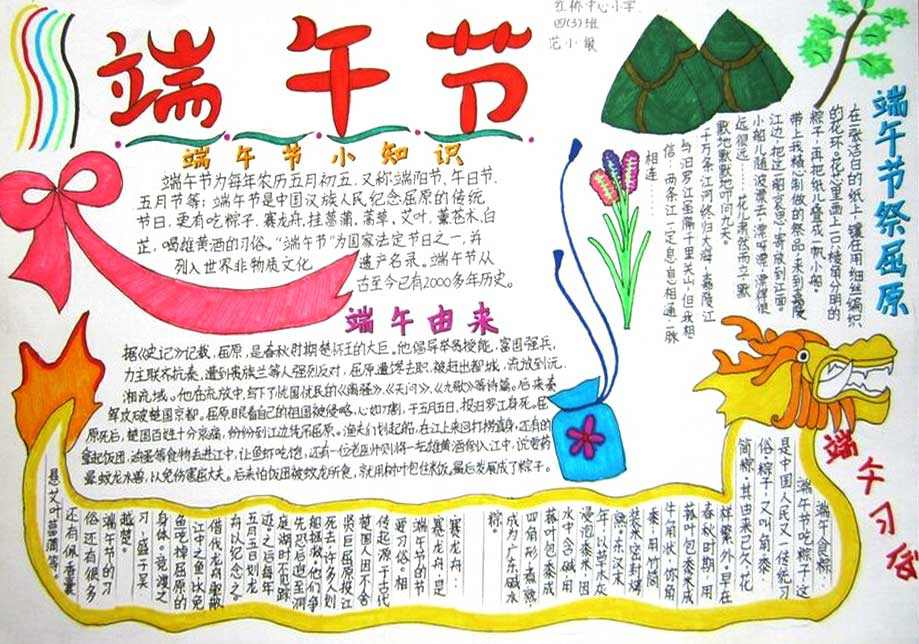 红桥中心小学
四(3)班
范小敏
端午节
端午节小知识
端午节为每年农历五月初五,又称端阳节、午日节、
五月节等;端午节是中国汉族人民纪念屈原的传统
节日,更有吃粽子,赛龙舟,挂菖蒲,蒿草,艾叶,薰苍术,白
芷,喝雄黄酒的习俗。“端午节”为国家法定节日之一,并
列入世界非物质文化遗产名录。端午节从
古至今已有2000多年历史。
端午由来
据《史记》记载,屈原,是春秋时期楚怀王的大臣。他倡导举贤授能,富国强兵,
力主联齐抗秦,遭到贵族兰等人强烈反对,屈原遭馋去职,被赶出都城,流放到沅、
湘流域。他在流放中,写下了忧国忧民的《离骚》、《天问》、《九歌》等诗篇。后来秦
军攻破楚国京都。屈原眼看自己的祖国被侵略,心如刀割,于五月五日,投汨罗江身死。屈
原死后,楚国百姓十分哀痛,纷纷到江边凭吊屈原。渔夫们划起船,在江上来回打捞真身,还有的
拿起饭团、鸡蛋等食物丢进江中,让鱼虾吃饱,还有一位老医师则将一坛雄黄酒倒入江中,说要药
晕蛟龙水兽,以免伤害屈大夫。后来怕饭团被蛟龙所食,就用树叶包住米饭,最后发展成了粽子。
端午节祭屈原
在一张洁白的纸上,镶在用细丝编织
的花环,花心里画上一只棱角分明的
粽子,再把纸儿叠成一帆小船。
带上我精心制做的祭品,来到嘉陵
江边,把这船哀思,寄放到江面。
小船儿随波漂去,漂呀漂,漂得很
远很远……花儿肃然而立,默
默地默默地叩问九天。
千万条江河终归大海,嘉陵江
与汨罗江虽隔千里关山,但我相
信,两条江一定息息相通一脉
相连……
端午习俗
端午食粽:
端午节吃粽子,这
是中国人民又一传统习
俗。粽子,又叫“角黍”、
“筒粽”。其由来已久,花
样繁多。早在
春秋时期,用
菰叶包黍米成
牛角状,称“角
黍”;用竹筒
装米密封烤
熟,东汉末
年,以草木灰
浸泡黍米,因
水中含碱,用
菰叶包黍米成
四角形,煮熟,
成为广东碱水
粽。
赛龙舟:
赛龙舟,是
端午节的节
要习俗。相
传起源于古代
楚国人因不舍
贤臣屈原投江
死去,许多人划
船追赶拯救。他们争
先恐后,追至洞
庭湖时不见踪
迹。之后每年
五月五日划龙
舟以纪念之。
借划龙舟驱散
江中之鱼,以免
鱼吃掉屈原的
身体。竞渡之
习,盛于吴
越楚。
端午节的习
俗还有很多
还有佩香囊
悬艾叶菖蒲等。